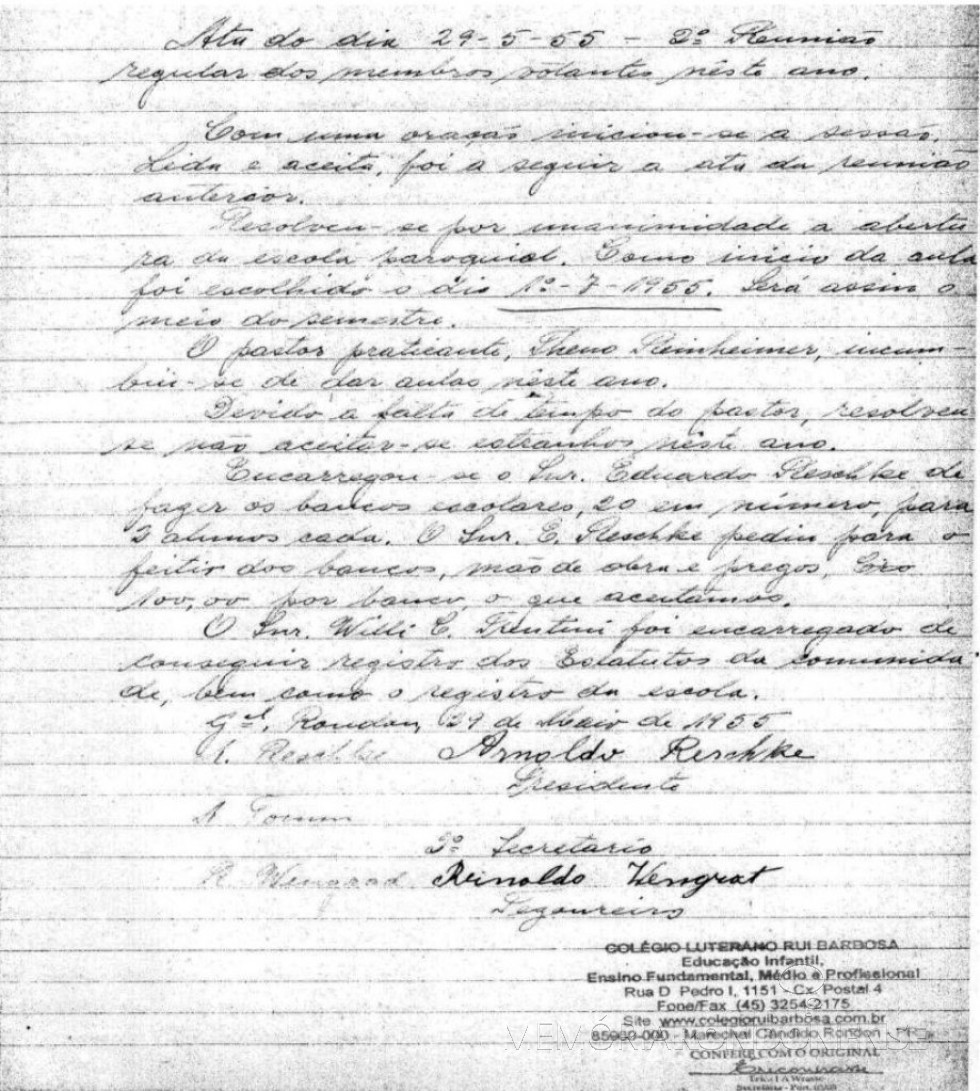 Ata do dia 29-5-55 - 2º Reunião
regular dos membros votantes nêste ano.
Com uma oração iniciou-se a sessão.
Lida e aceita, foi a seguir a ata da reunião
anterior.
Resolveu-se por unanimidade a abertu
ra da escola paroquial. Como inicio da aula
foi escolhido o dia 1º-7-1955. Será assim o
meio do semestre.
O pastor praticante, Theno Reinheimer, incum-
biu-se de dar aulas nêste ano.
Devido a falta de tempo do pastor, resolveu
se não aceitar-se estranhos nêste ano.
Encarregou-se o Snr. Eduardo Reschke de
fazer os bancos escolares, 20 em número, para
2 alunos cada. O Snr. E. Reschke pediu para o
feitio dos bancos, mão de obra e pregos,
100,00 por banco, o que aceitamos.
O Snr. Willi C. Trentini foi encarregado de
conseguir registro dos Estatutos da comunida
de, bem como o registro da escola.
Gal. Rondon, 29 de Maio de 1955
A. Reschke Arnoldo Reschke
Presidente
2º Secretario
R. Wengrad Reinoldo Wengrat
Tezoureiro
COLÉGIO LUTERANO RUI BARBOSA
Educação Infantil,
Ensino Fundamental, Médio e Profissional
Rua D Pedro I, 1151 - Cx. Postal 4
Fone/Fax (45) 3254-2175
Site www.colegioruibarbosa.com.br
85960-000 - Marechal Cândido Rondon - PR
CONFERE COM O ORIGINAL